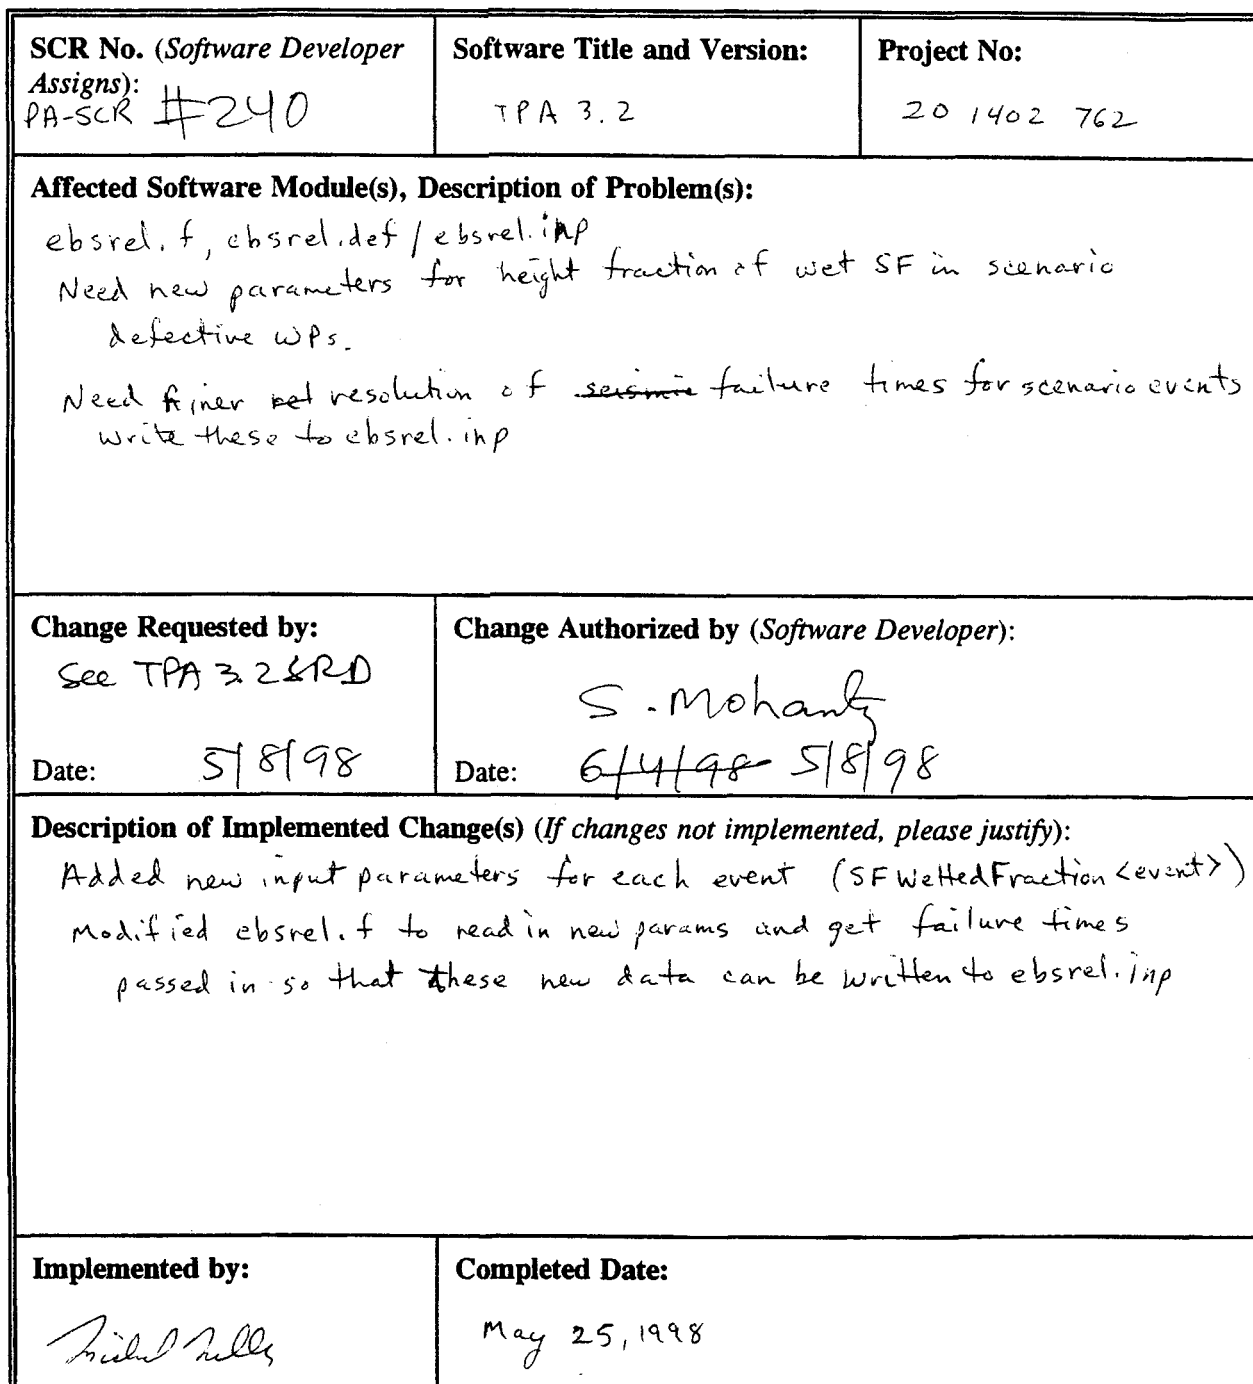 SCR No. (Software Developer
Assigns):
PA-SCR #240
Software Title and Version:
TPA 3.2
Project No:
20 1402 762
Affected Software Module(s), Description of Problem(s):
ebsrel.f, ebsrel.def / ebsrel.inp
Need new parameters for height fraction of wet SF in scenario
defective WPs.
Need finer resolution of seismic failure times for scenario events
write these to ebsrel.inp
Change Requested by:
See TPA 3.2 SRD
Date: 5/8/98
Change Authorized by (Software Developer):
S. Mohanty
Date: 6/4/98 5/8/98
Description of Implemented Change(s) (If changes not implemented, please justify):
Added new input parameters for each event (SFWettedFraction<event>)
Modified ebsrel.f to read in new params and get failure times
passed in so that these new data can be written to ebsrel.inp
Implemented by:
Completed Date:
May 25, 1998